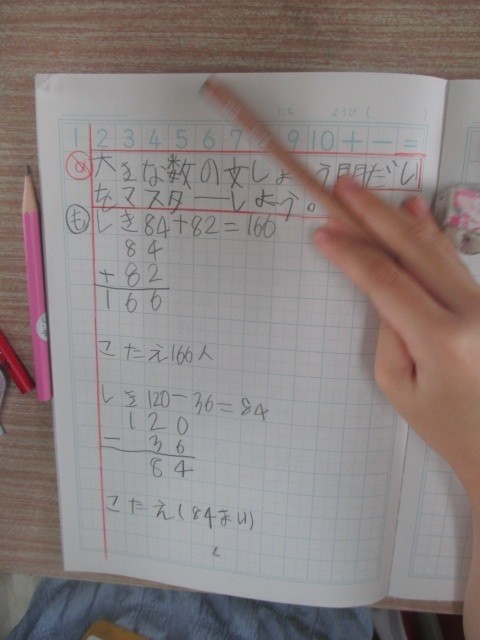 1 2 3 4 5 6 7 8 9 10 + - =
め 大きな数の文しょう問だい
をマスターしよう。
も しき84+82=166
84
+82
166
こたえ166人
しき120-36=84
120
- 36
84
こたえ(84まい)